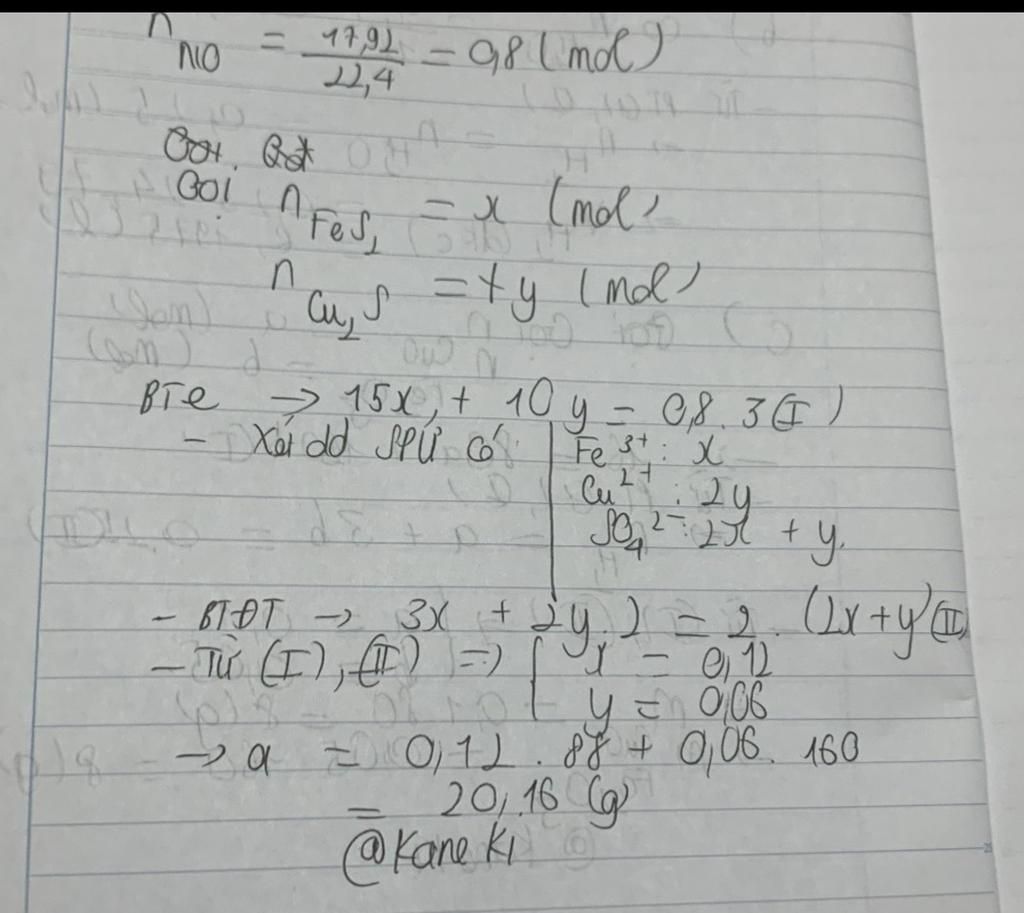 n NO = 17,92 / 22,4 = 0,8 (mol)
Gọi n FeS2 = x (mol)
n Cu2S = y (mol)
BTe → 15x + 10y = 0,8 . 3 (I)
- Xét dd SPƯ có: Fe3+ : x
Cu2+ : 2y
SO4 2- : 2x + y.
- BTĐT → 3x + 2y . 2 = 2 . (2x+y) (II)
- Từ (I), (II) => { x = 0,12
y = 0,06
→ a = 0,12 . 88 + 0,06 . 160
= 20,16 (g)
@Kane Ki